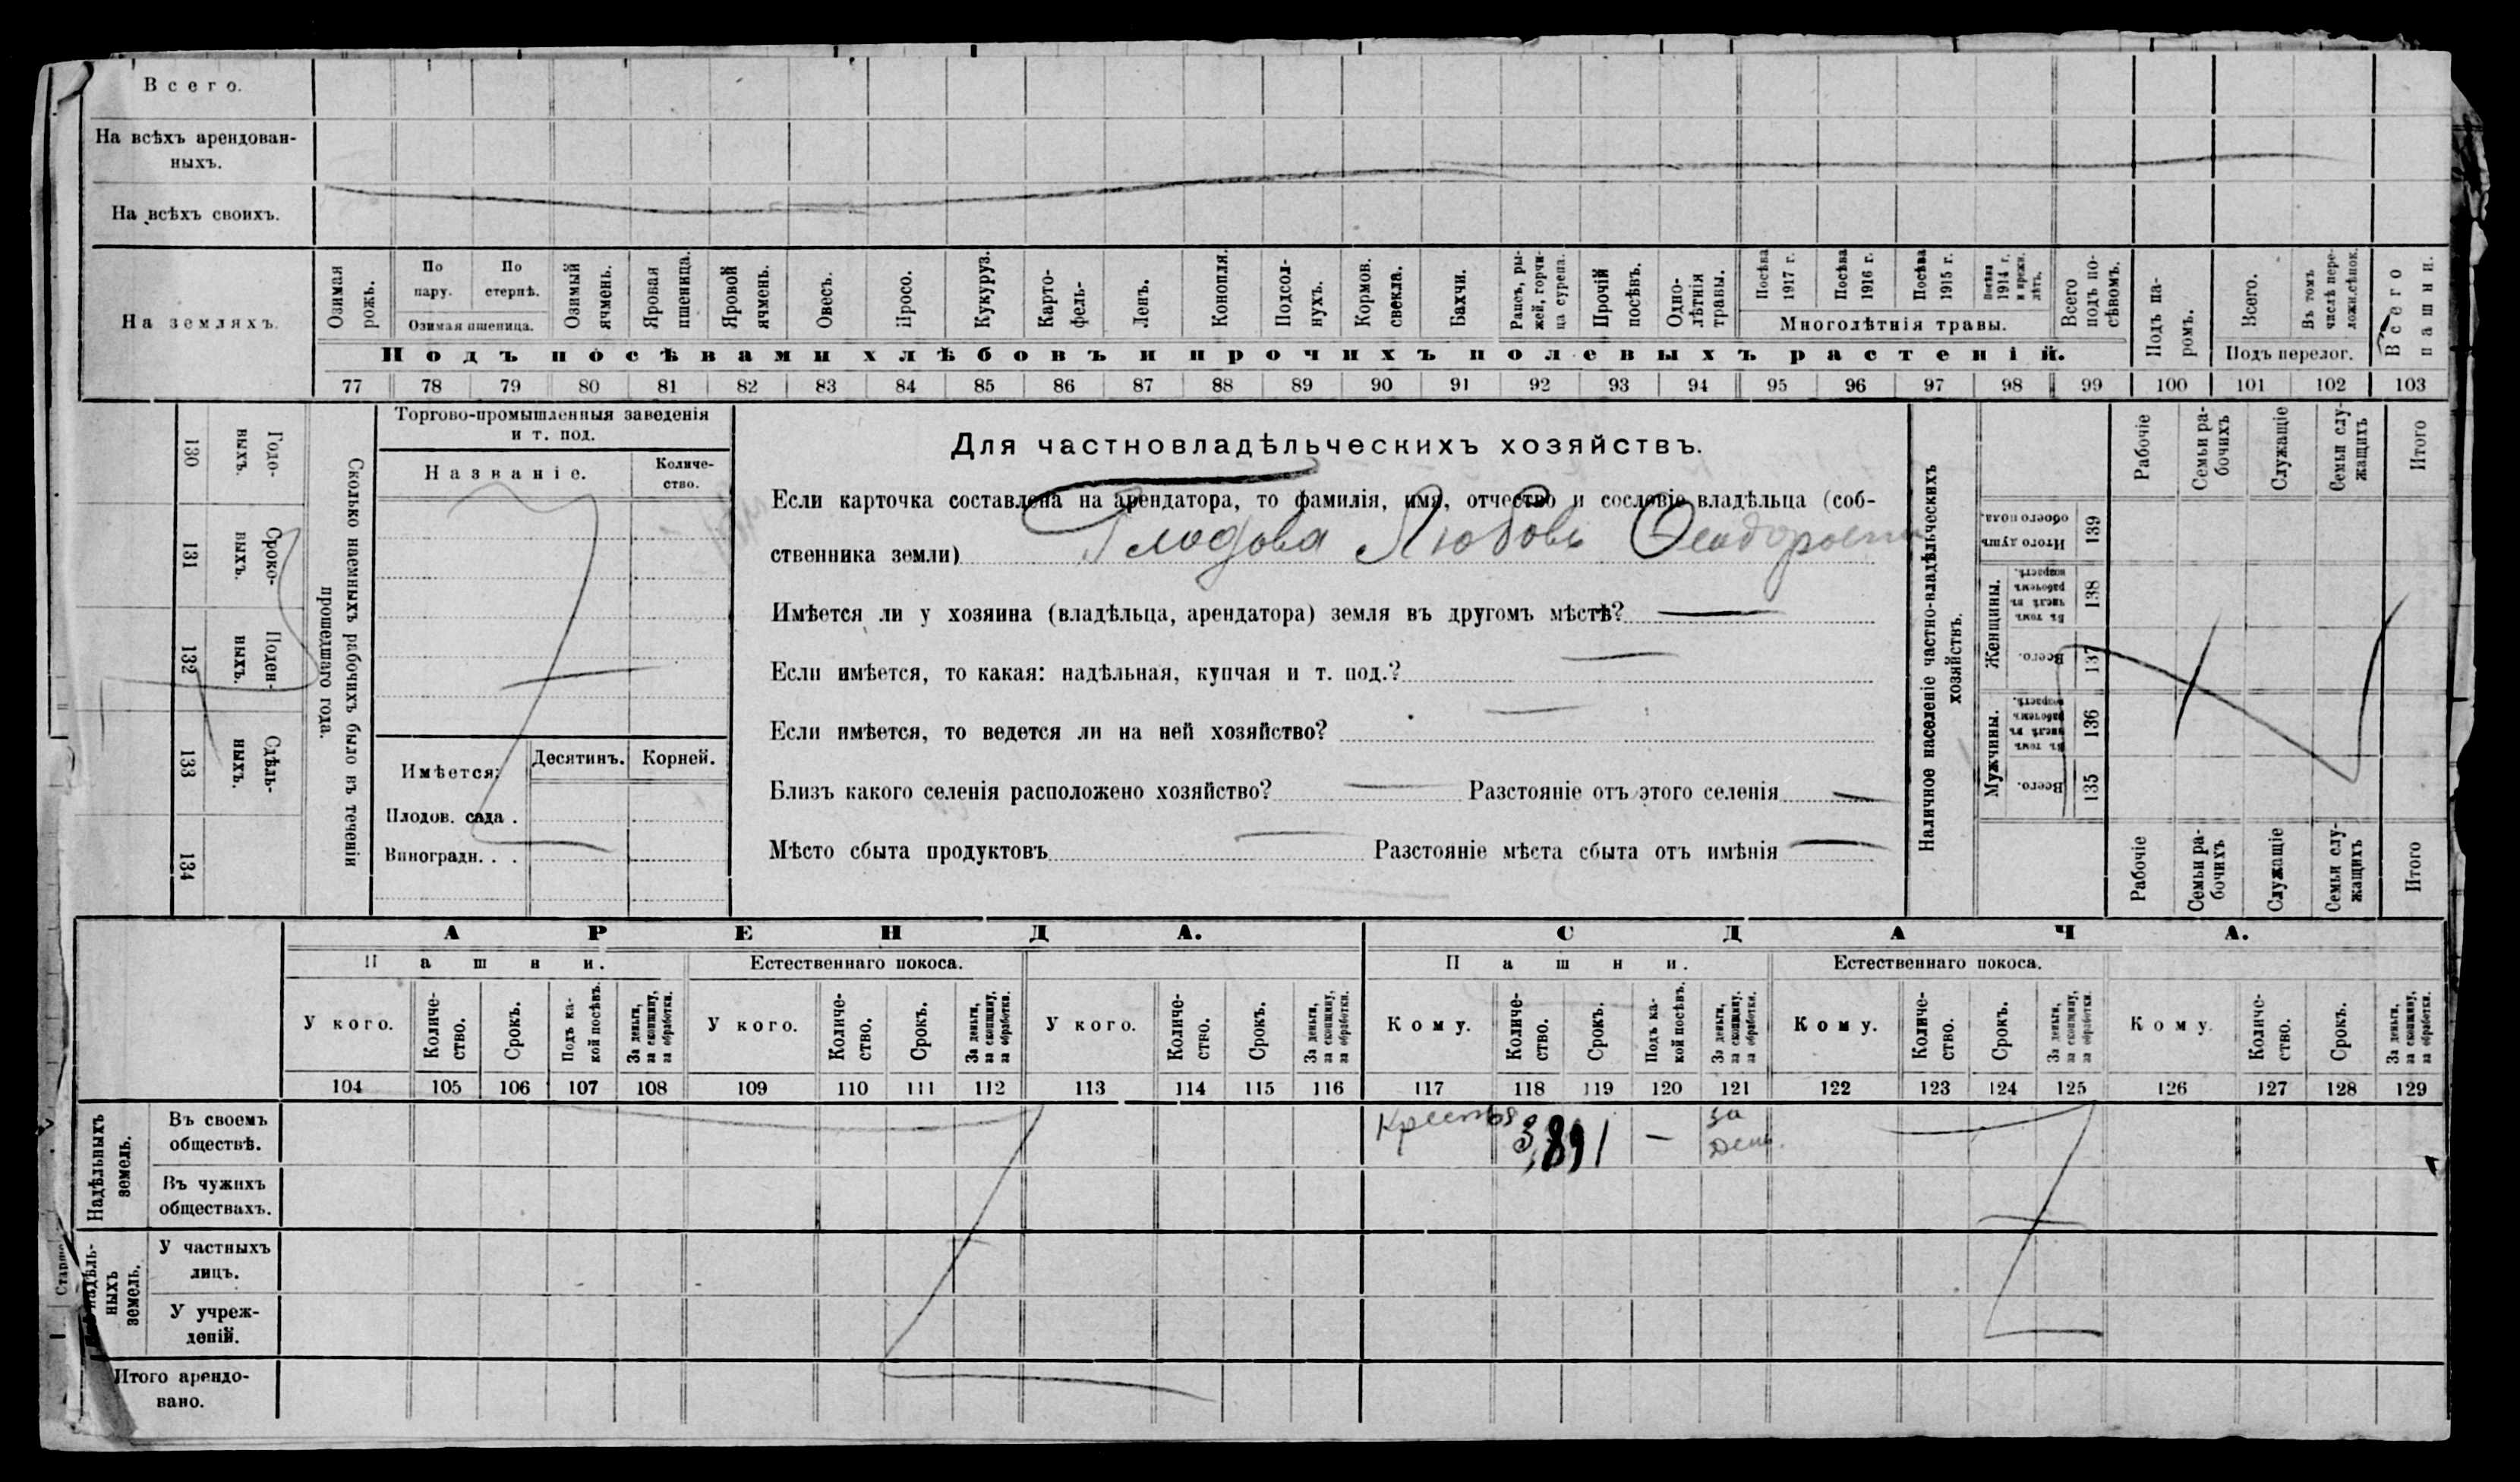 Всего.
На всѣхъ арендован-
ныхъ.
На всѣхъ своихъ.
На земляхъ.
Озимая рожь.
По пару.
По стернѣ.
Озимая пшеница.
Озимый ячмень.
Яровая пшеница.
Яровой ячмень.
Овесъ.
Просо.
Кукуруз.
Карто-
фель-
Ленъ.
Конопля.
Подсол-
нухъ.
Кормов.
свекла.
Бахчи.
Рапсъ, ры-
жей, горчи-
ца сурепа.
Прочій
посѣвъ.
Одно-
лѣтнія
травы.
Посѣва
1917 г.
Посѣва
1916 г.
Посѣва
1915 г.
Посѣва
1914 г.
и прежн.
лѣтъ.
Многолѣтнія травы.
Всего
подъ по-
сѣвомъ.
Подъ посѣвами хлѣбовъ и прочихъ полевыхъ растеній.
Подъ па-
ромъ.
Всего.
Въ томъ
числѣ пере-
ложн.сѣнок.
Подъ перелог.
Всего
пашни.
77 78 79 80 81 82 83 84 85 86 87 88 89 90 91 92 93 94 95 96 97 98 99 100 101 102 103
Годо-
ныхъ.
130
Сроко-
ныхъ.
131
Поден-
ныхъ.
132
Сдѣль-
ныхъ.
133
134
Сколько наемныхъ рабочихъ было въ теченіи
прошедшаго года.
Торгово-промышленныя заведенія
и т. под.
Названіе.
Количе-
ство.
Имѣется:
Десятинъ.
Корней.
Плодов. сада .
Виноградн. . .
Для частновладѣльческихъ хозяйствъ.
Если карточка составлена на арендатора, то фамилія, имя, отчество и сословіе владѣльца (соб-
ственника земли) Любовь
Имѣется ли у хозяина (владѣльца, арендатора) земля въ другомъ мѣстѣ? —
Если имѣется, то какая: надѣльная, купчая и т. под.? —
Если имѣется, то ведется ли на ней хозяйство? —
Близъ какого селенія расположено хозяйство? — Разстояніе отъ этого селенія —
Мѣсто сбыта продуктовъ — Разстояніе мѣста сбыта отъ имѣнія —
Наличное населеніе частно-владѣльческихъ
хозяйствъ.
Рабочіе
Семьи ра-
бочихъ
Служащіе
Семьи слу-
жащихъ
Итого
Итого душъ
обоего пола.
139
Женщины.
Въ томъ
числѣ въ
рабочемъ
возрастѣ.
138
Всего.
137
Мужчины.
Въ томъ
числѣ въ
рабочемъ
возрастѣ.
136
Всего.
135
Рабочіе
Семьи ра-
бочихъ
Служащіе
Семьи слу-
жащихъ
Итого
АРЕНДА.
СДАЧА.
Пашни.
Естественнаго покоса.
Пашни.
Естественнаго покоса.
У кого.
Количе-
ство.
Срокъ.
Подъ ка-
кой посѣвъ.
За деньги,
за скопщину,
за обработки.
У кого.
Количе-
ство.
Срокъ.
За деньги,
за скопщину,
за обработки.
У кого.
Количе-
ство.
Срокъ.
За деньги,
за скопщину,
за обработки.
Кому.
Количе-
ство.
Срокъ.
Подъ ка-
кой посѣвъ.
За деньги,
за скопщину,
за обработки.
Кому.
Количе-
ство.
Срокъ.
За деньги,
за скопщину,
за обработки.
Кому.
Количе-
ство.
Срокъ.
За деньги,
за скопщину,
за обработки.
104 105 106 107 108 109 110 111 112 113 114 115 116 117 118 119 120 121 122 123 124 125 126 127 128 129
Надѣльныхъ
земель.
Въ своемъ
обществѣ.
— за
Въ чужихъ
обществахъ.
ныхъ
земель.
У частныхъ
лицъ.
У учреж-
деній.
Итого арендо-
вано.